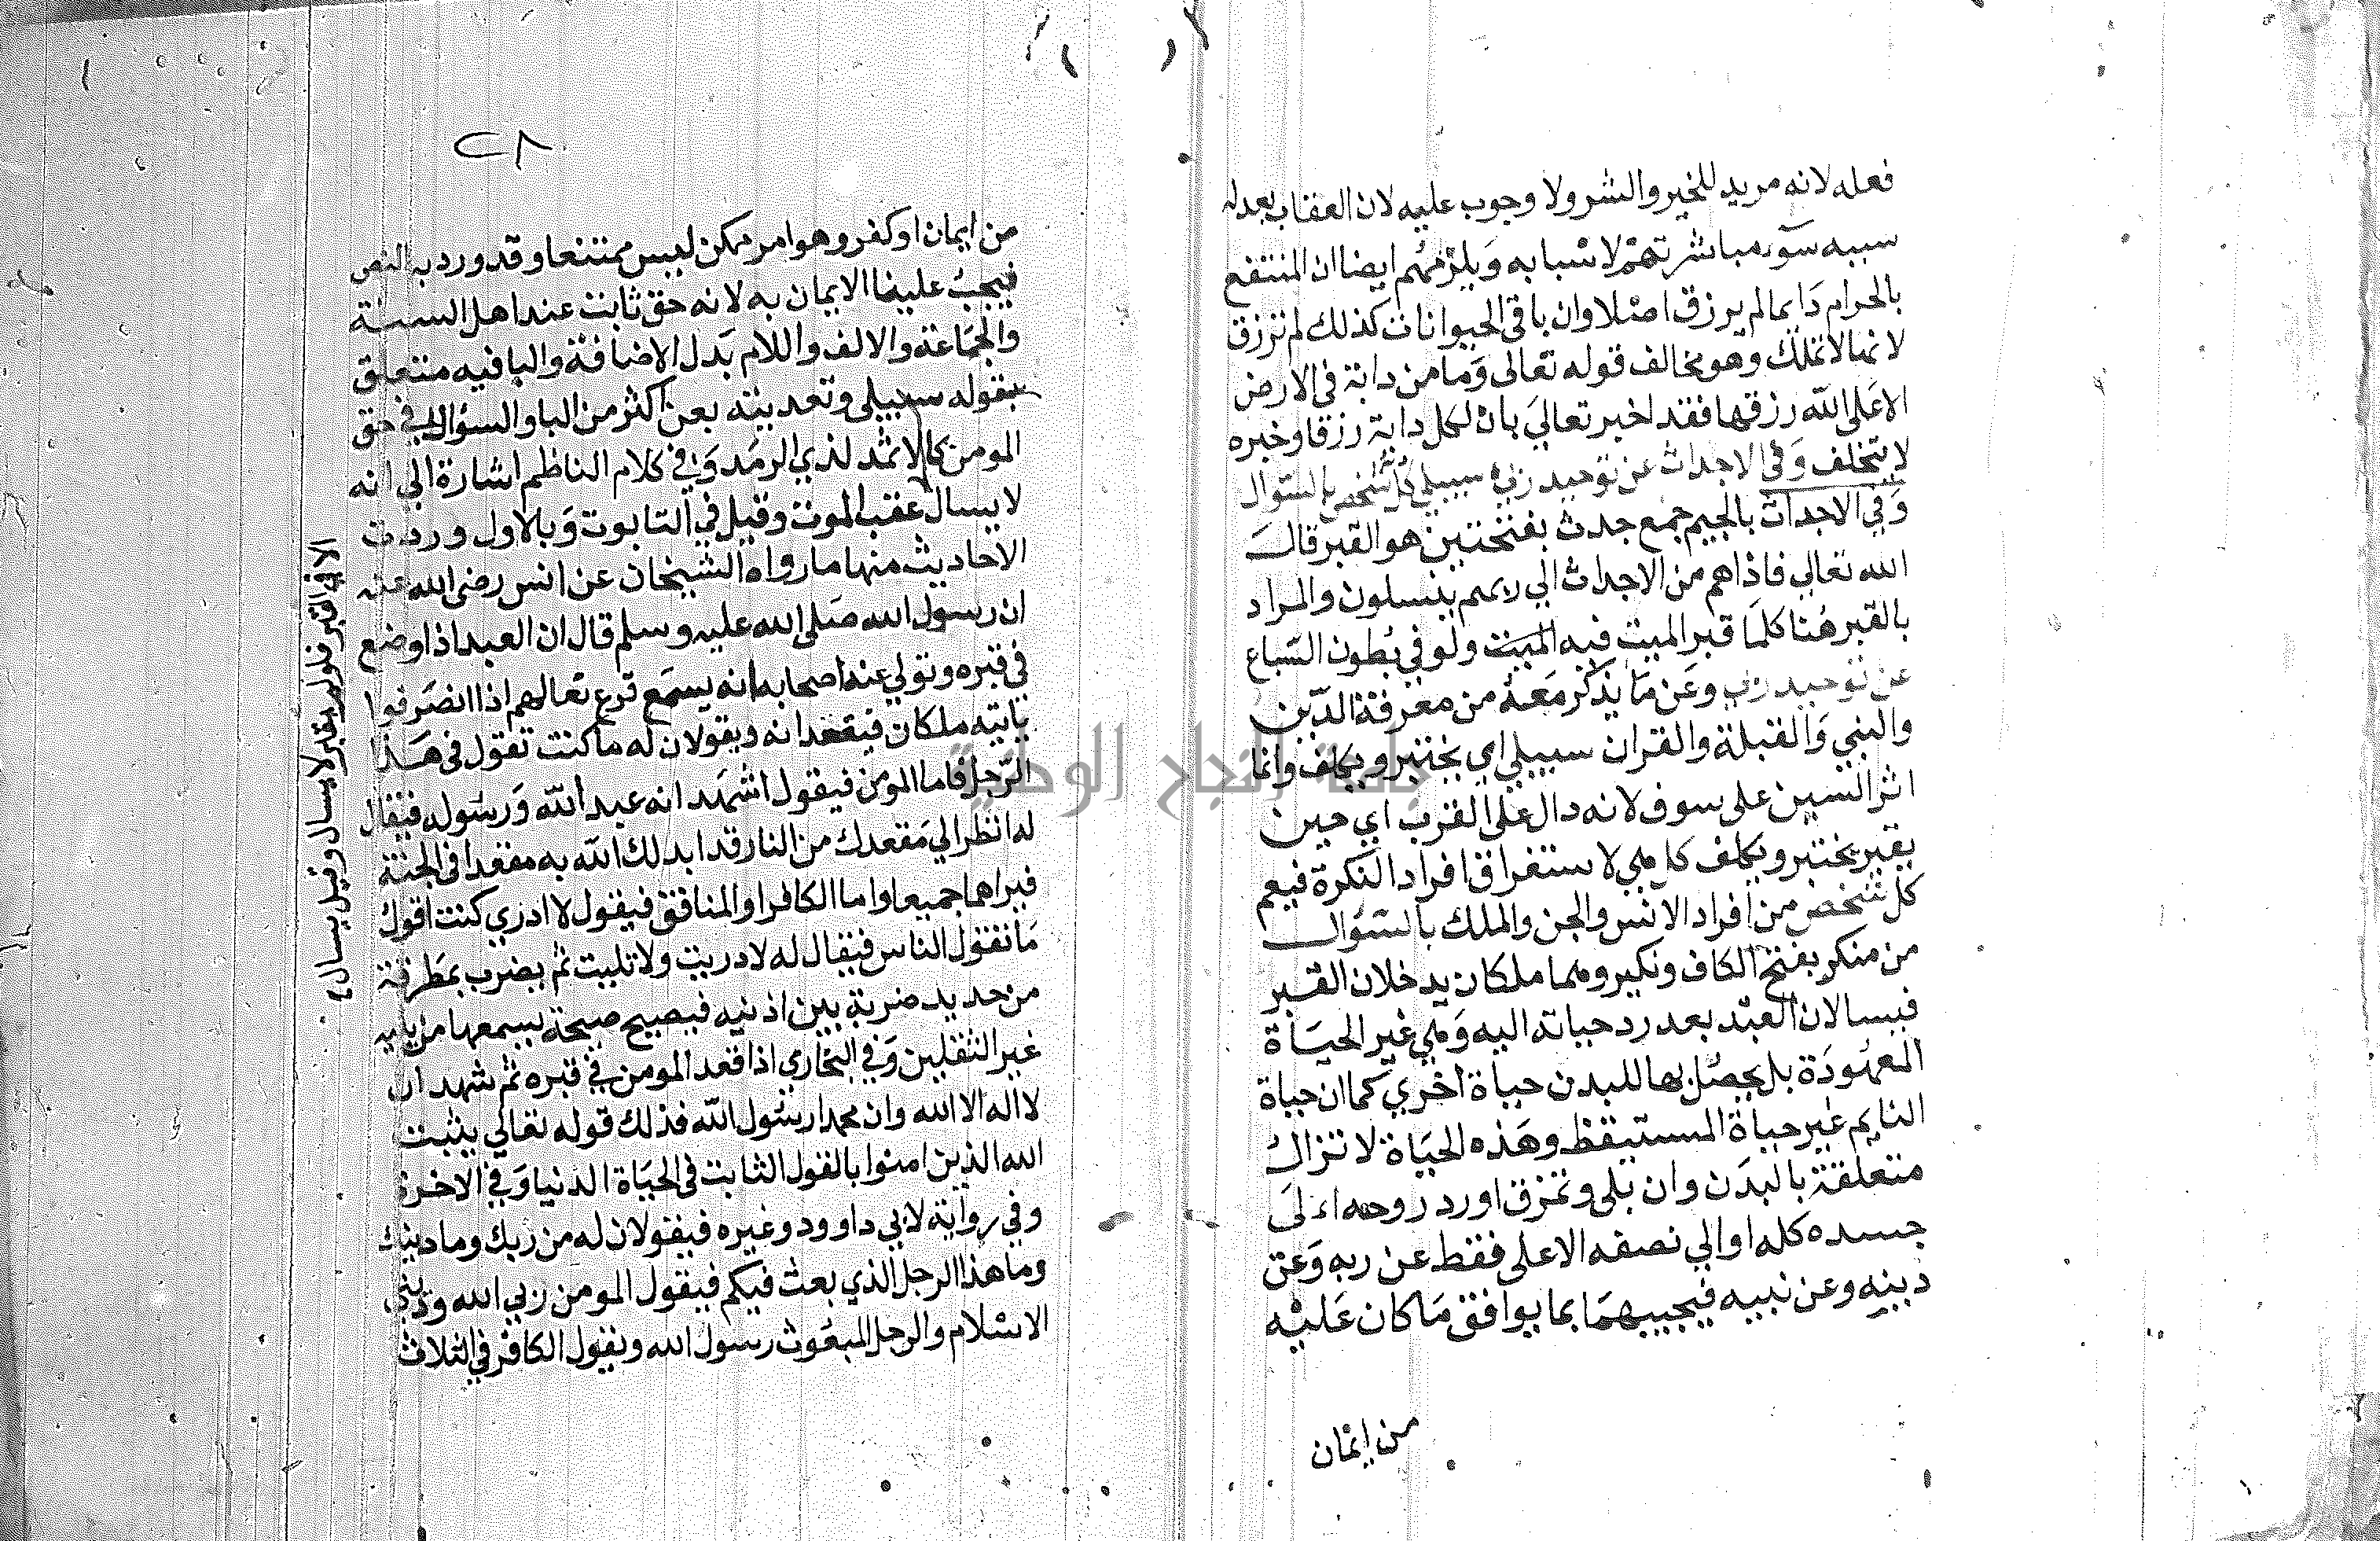 فعله لانه مريد للخير والشر ولا وجوب عليه لان العقاب بعدله
سببه سوء مباشرتهم لاسبابه ويلزمهم ايضا ان المنتفع
بالحرام دايما لم يرزق اصلا وان باقي الحيوانات كذلك لم ترزق
لانها لا تملك وهو مخالف قوله تعالى وما من دابة في الارض
الا على الله رزقها فقد اخبر تعالي بان لكل دابة رزقا وخبره
لا يتخلف وفي الاجداث عن توحيد ربي سيبلي كل شخص بالسوال
وفي الاجداث بالجيم جمع جدث بفتحتين هو القبر قال
الله تعالي فاذا هم من الاجداث الي ربهم ينسلون والمراد
بالقبر هنا كلما قبر الميت فيه الميت ولو في بطون السباع
عن توحيد ربي وعن ما يذكر معه من معرفة الدين
والنبي والقبلة والقران سيبلي اي يختبر ويكلف وانما
اثر السين على سوف لانه دال على القرب اي حين
يقبر يختبر ويكلف كل هي لاستغراق افراد النكرة فيعم
كل شخص من افراد الانس والجن والملك بالسوال
من منكر بفتح الكاف ونكير وهما ملكان يدخلان القبر
فيسالان العبد بعد رد حياته اليه وهي غير الحياة
المعهودة بل يحصل بها للبدن حياة اخري كما ان حياة
النايم غير حياة المستيقظ وهذه الحياة لا تزال
متعلقة بالبدن وان بلي وتمزق اورد روحه الى
جسده كله او الي نصفه الاعلى فقط عن ربه وعن
دينه وعن نبيه فيجيبهما بما يوافق ما كان عليه
من ايمان
٢٨
من ايمان او كفر وهو امر ممكن ليس ممتنعا وقد ورد به النص
فيجب علينا الايمان به لانه حق ثابت عند اهل السنة
والجماعة والالف واللام بدل الاضافة والبا فيه متعلق
بقوله سيبلي وتعديته بعن اكثر من البا والسؤال في حق
المومن كالاثمد لذي الرمد وفي كلام الناظم اشارة الي انه
لا يسال عقب الموت وقيل في التابوت وبالاول وردت
الاحاديث منها ما رواه الشيخان عن انس رضي الله عنه
ان رسول الله صلى الله عليه وسلم قال ان العبد اذا وضع
في قبره وتولي عنه اصحابه انه يسمع قرع نعالهم اذا انصرفوا
ياتيه ملكان فيقعدانه ويقولان له ما كنت تقول في هذا
الرجل فاما المومن فيقول اشهد انه عبد الله ورسوله فيقال
له انظر الي مقعدك من النار قد ابدلك الله به مقعدا في الجنة
فيراهما جميعا واما الكافر او المنافق فيقول لا ادري كنت اقول
ما تقول الناس فيقال له لا دريت ولا تليت ثم يضرب بمطرقة
من حديد ضربة بين اذنيه فيصيح صيحة يسمعها من يليه
غير الثقلين وفي البخاري اذا قعد المومن في قبره ثم شهد ان
لا اله الا الله وان محمدا رسول الله فذلك قوله تعالي يثبت
الله الذين امنوا بالقول الثابت في الحياة الدنيا وفي الاخرة
وفي رواية لابي داوود وغيره فيقولان له من ربك وما دينك
وما هذا الرجل الذي بعث فيكم فيقول المومن ربي الله وديني
الاسلام والرجل المبعوث رسول الله ويقول الكافر في الثلاث
الا في القبر فلو لم يقبر لا يسال وقيل يسال
جامعة النجاح الوطنية